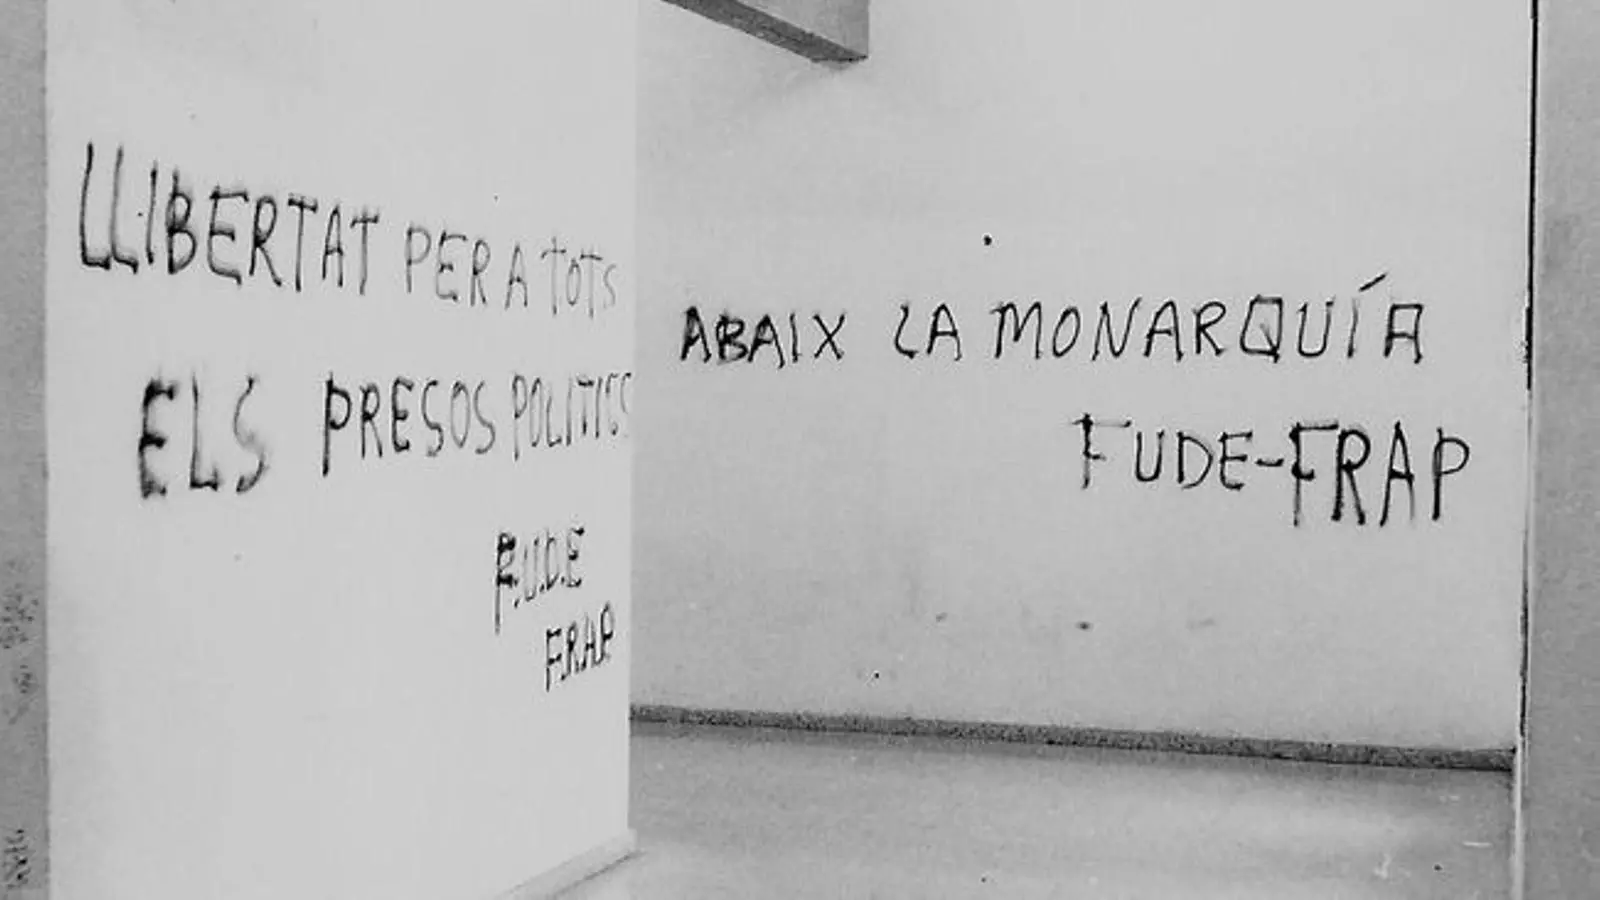 LLIBERTAT PER A TOTS
ELS PRESOS POLITICS
F.U.D.E
F.R.A.P
ABAIX LA MONARQUÍA
FUDE-FRAP